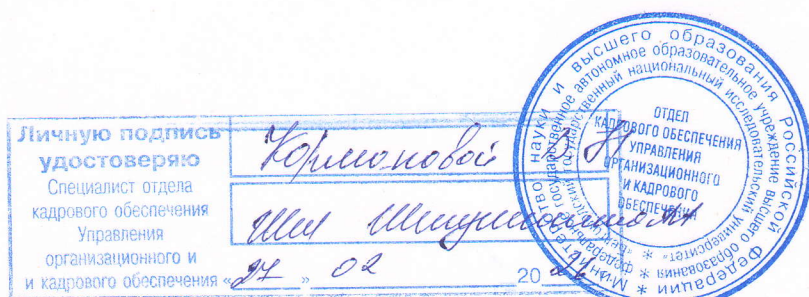 Личную подпись
удостоверяю
Специалист отдела
кадрового обеспечения
Управления
организационного и
и кадрового обеспечения «27» 02 20
Министерство науки и высшего образования Российской Федерации *
федеральное государственное автономное образовательное учреждение высшего образования *
национальный исследовательский университет» *
ОТДЕЛ
КАДРОВОГО ОБЕСПЕЧЕНИЯ
УПРАВЛЕНИЯ
ОРГАНИЗАЦИОННОГО
И КАДРОВОГО
ОБЕСПЕЧЕНИЯ